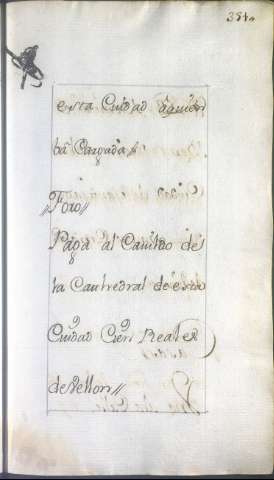 384
esta Ciudad aquien
ba Cargada //
// Foro //
Paga al Cavildo de
la Cathedral de esta
Ciudad Cien Reales
de Vellon //